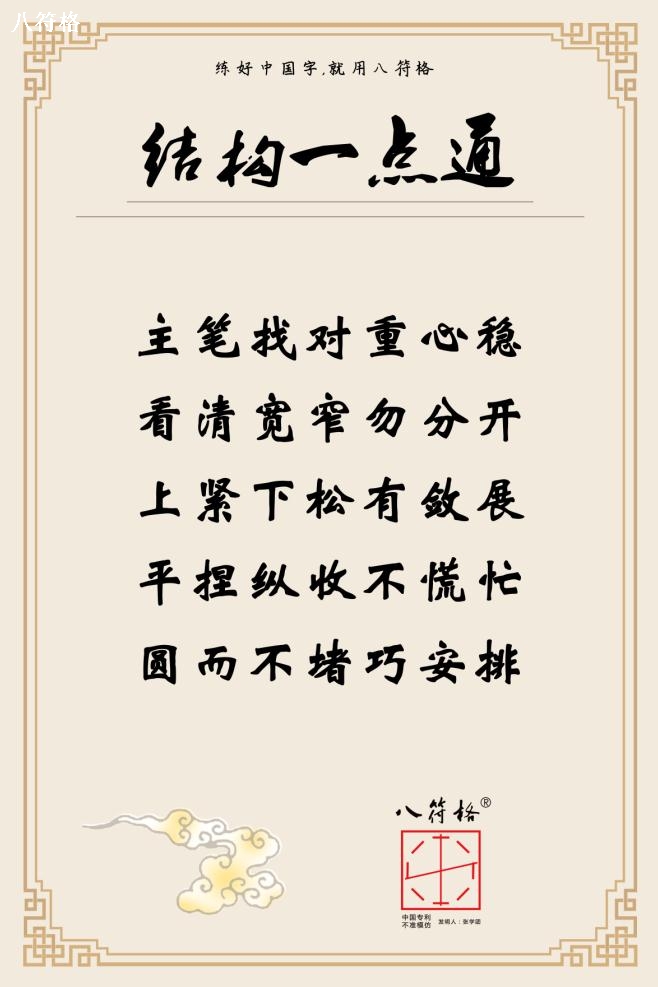 八符格
练好中国字,就用八符格
结构一点通
主笔找对重心稳
看清宽窄勿分开
上紧下松有敛展
平捏纵收不慌忙
圆而不堵巧安排
八符格®
中国专利
不准模仿
发明人：张学团